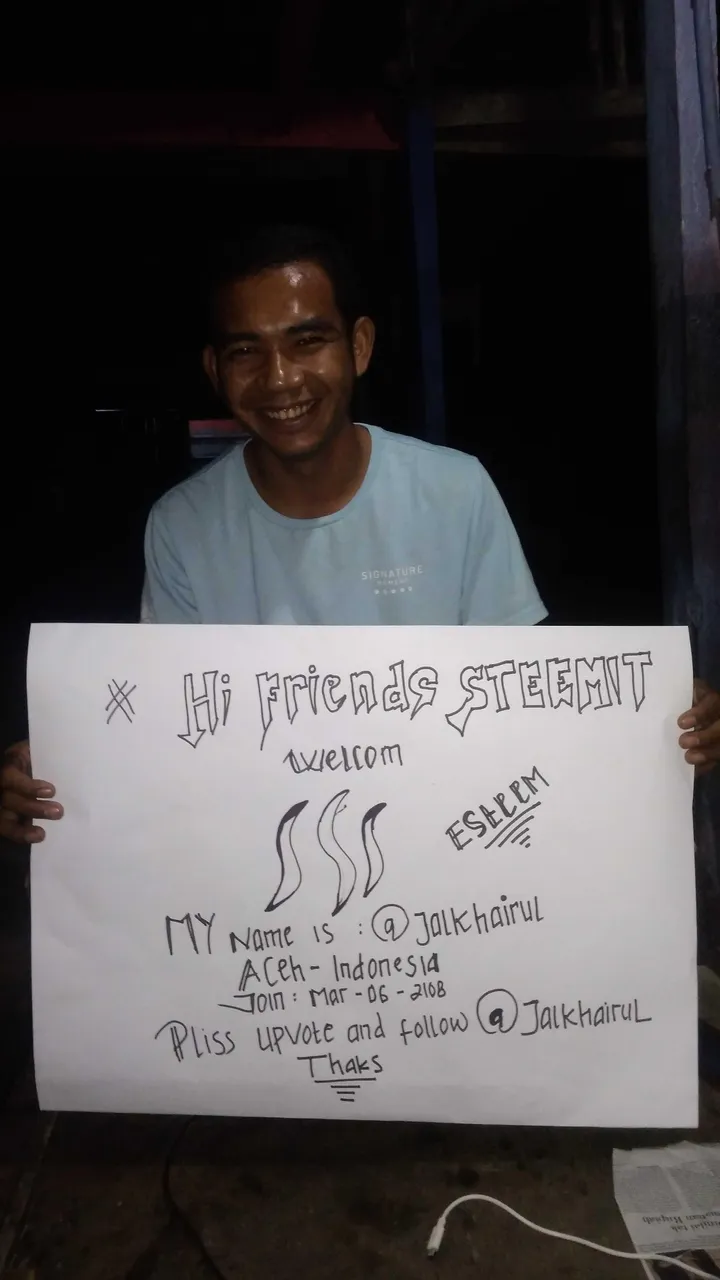 SIGNATURE
* Hi Friends STEEMIT
Wellcom
ESteeM
MY Name is : @Jalkhairul
ACeh - Indonesia
Join : Mar - 06 - 2108
Pliss UPVote and follow @JalkhairuL
Thaks